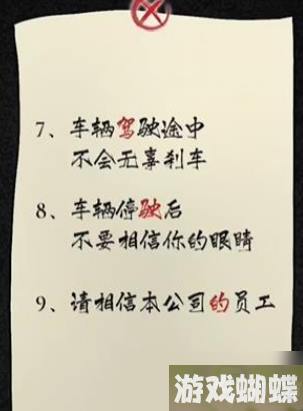 7、车辆驾驶途中
不会无辜刹车
8、车辆停驶后
不要相信你的眼睛
9、请相信本公司的员工
游戏蝴蝶